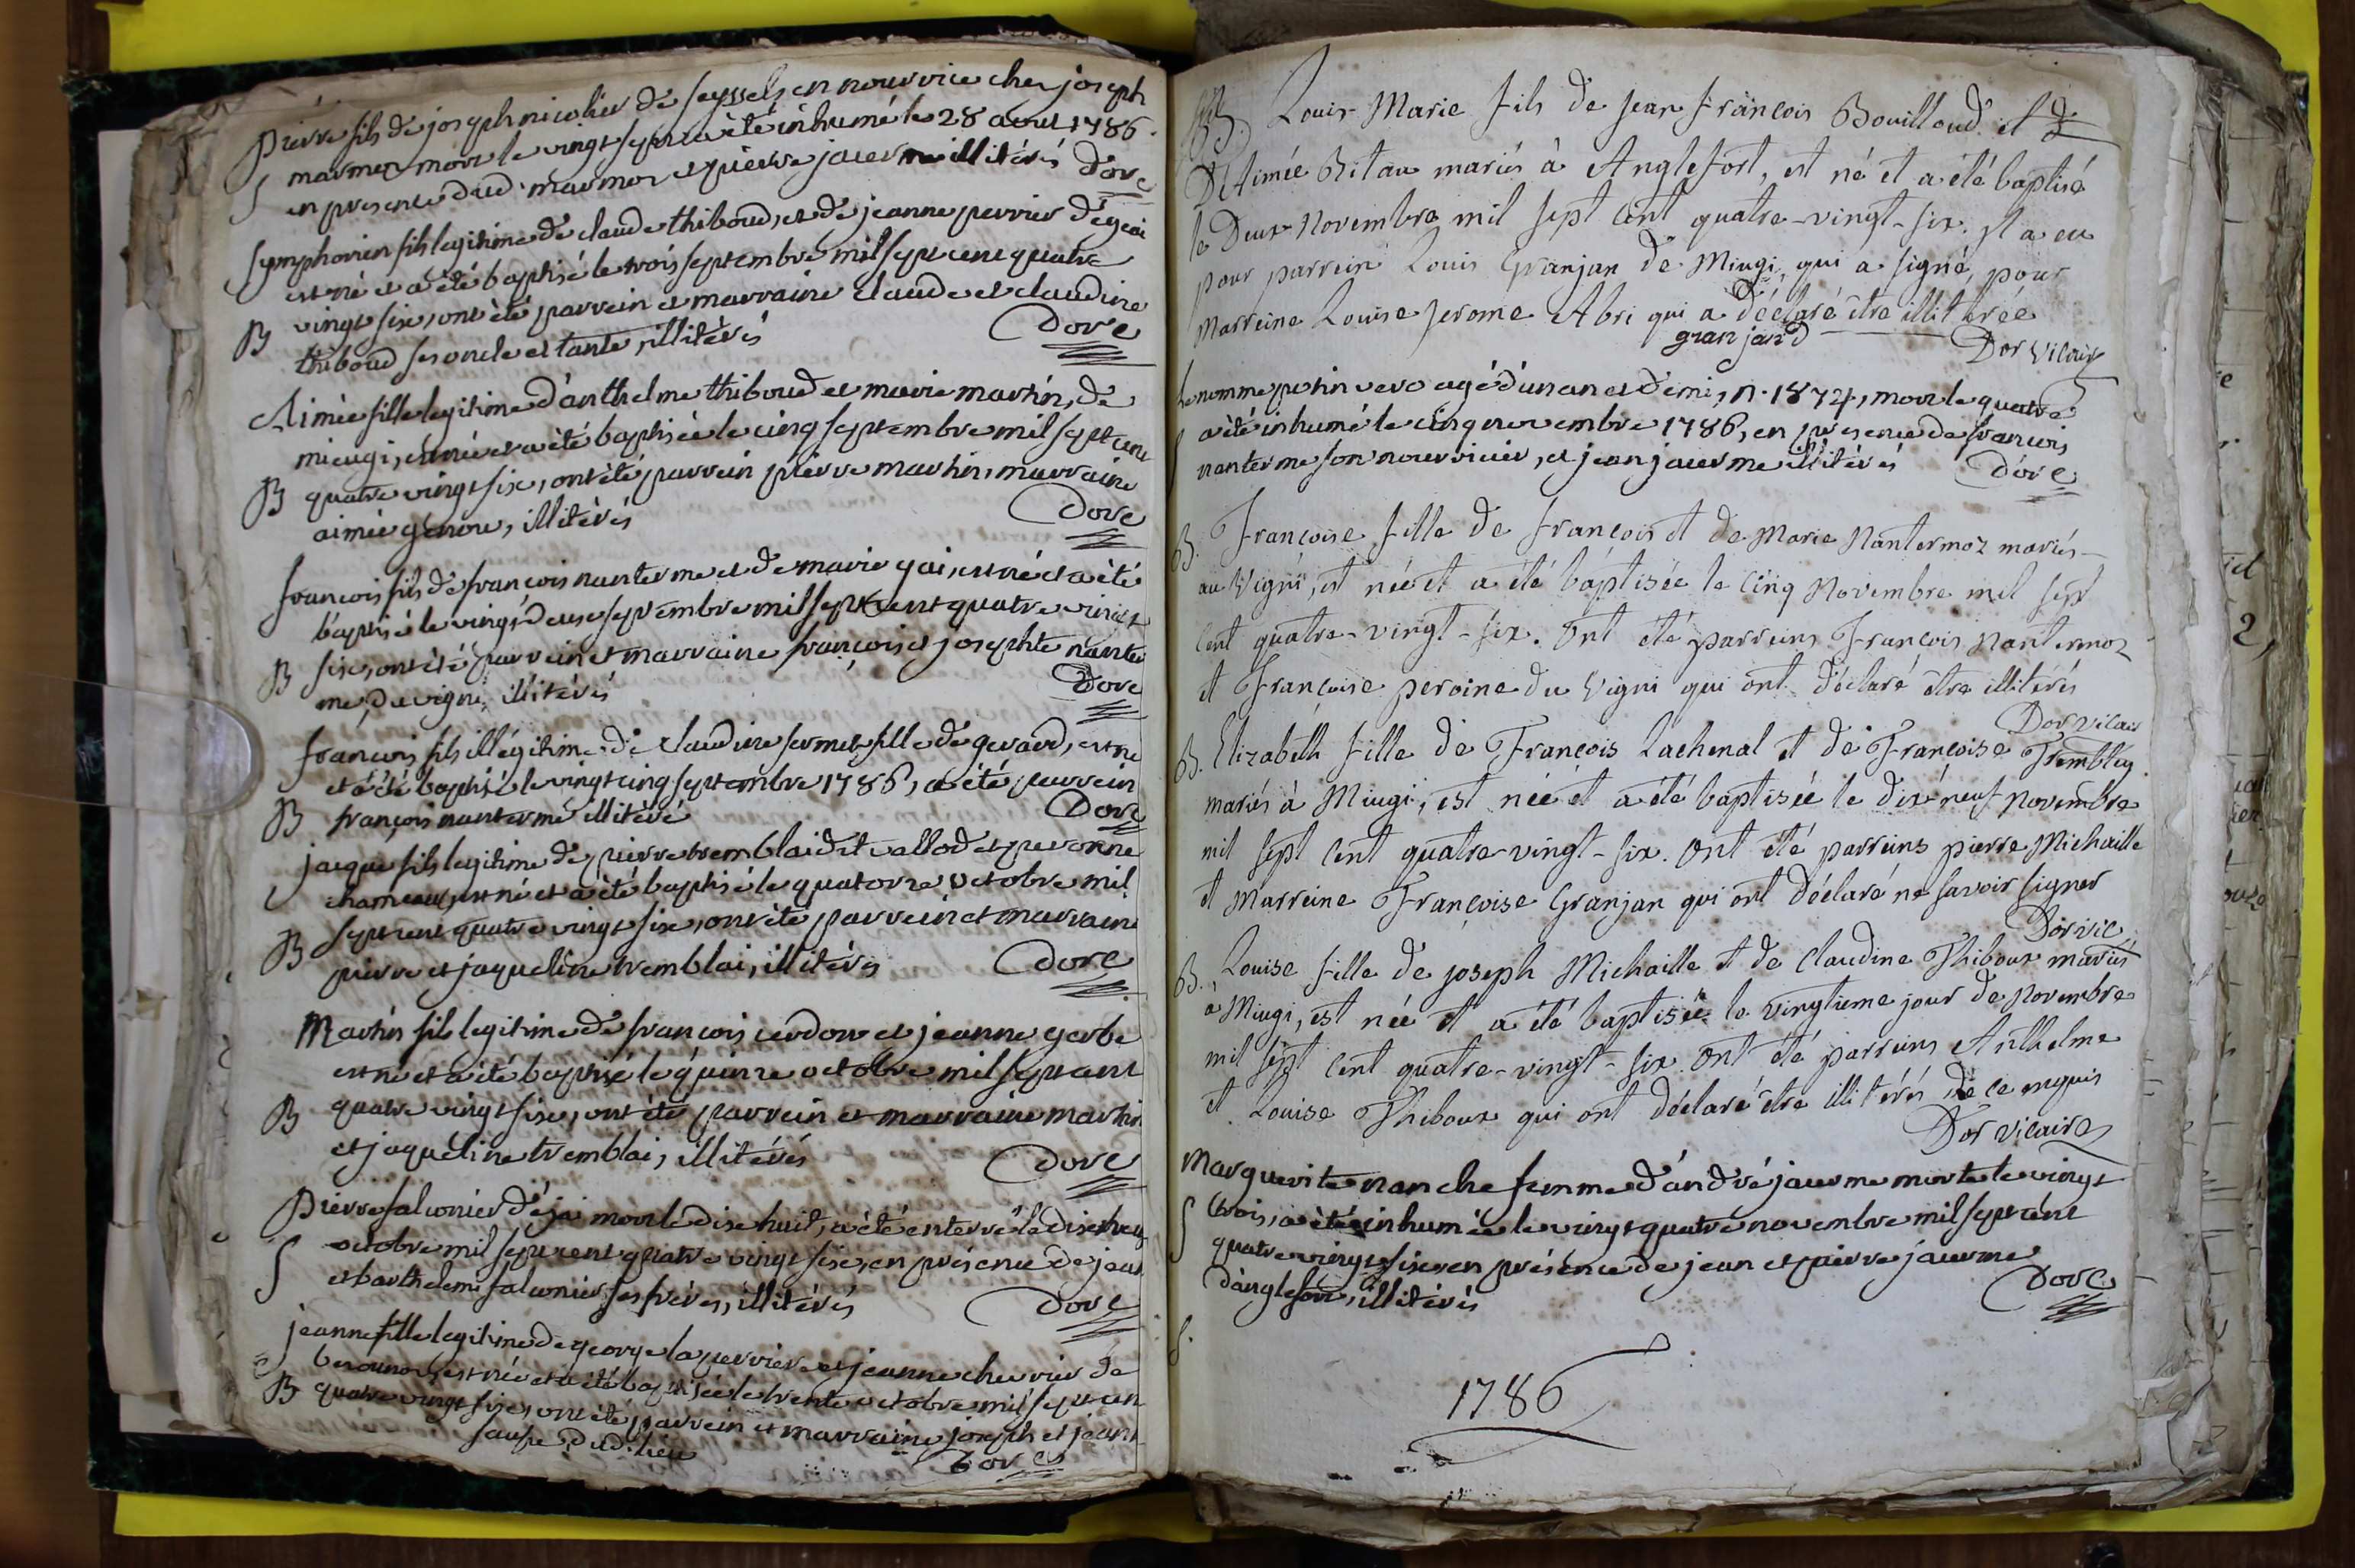 pierre fils de joseph nicolier de seyssels en nourrice chez joseph
marmoz mort le vingt sept a été inhumé le 28 aout 1786.
S en presence dud. marmoz et pierre jaerme illitérés dore
symphorien fils legitime de claude thiboud, et de jeanne perrier
est né et a été baptisé le trois septembre mil sept cent quatre
B vingt six, ont été parrein et marraine claude et claudine
thiboud ses oncle et tante, illitérés Dore
Aimée fille legitime d'anthelme thiboud et marie martin, de
mieugi, est née et a été baptisée le cinq septembre mil sept cent
B quatre vingt six, ont été parrein pierre martin, marraine
aimée illitérés Dore
francois fils de françois nanterme et de marie gai, est né et a été
baptisé le vingt deux septembre mil sept cent quatre vingt
B six, ont été parrein et marraine françois et josephte nanter
me, du vigni, illitérés Dore
francois fils illégitime de claudine fille de est né
et a été baptisé le vingt cinq septembre 1786, a été parrein
B françois nanterme illitéré Dore
jaque fils legitime de pierre tremblai dit vallod et peronne
chameau, est né et a été baptisé le quatorze octobre mil
B sept cent quatre vingt six, ont été parrein et marraine
pierre et jaqueline tremblai, illitérés Dore
Martin fils legitime de françois cerdon et jeanne gerbe
est né et a été baptisé le quinze octobre mil sept cent
B quatre vingt six, ont été parrein et marraine martin
et jaqueline tremblai, illitérés Dore
Pierre falconier mort le dix huit, a été enterré le dix neuf
S octobre mil sept cent quatre vingt six, en présence de jean
et barthelemi falconier, ses frères, illitérés Dore
jeanne fille legitime de george la perriere et jeanne chevrier de
est née et a été baptisée le trente octobre mil sept cen
B quatre vingt six, ont été parrein et marraine joseph et jeann
dud. lieu Dore
B. Louis-Marie fils de jean françois Bouilloud et de
D'Aimée Bitau mariés à Anglefort, est né et a été baptisé
le Deux Novembre mil sept cent quatre-vingt-six. Il a eu
pour parrein Louis Granjan de Miugi, qui a signé, pour
Marreine Louise jerome Abri qui a déclaré être illitérée
granjard Dor Vicaire
Le nommé agé d'un an et demi, n. 1874, mort le quatre
S a été inhumé le cinq novembre 1786, en presence de francois
nanterme son nourricier, et jean jaerme illitérés Dore
B. Françoise fille de françois et de Marie Nantermoz mariés
au Vigni, est née et a été baptisée le cinq Novembre mil sept
cent quatre-vingt-six. Ont été parreins François Nantermoz
et Françoise peroine du Vigni qui ont déclaré être illitérés
Dor vicaire
B. Elizabeth fille de François Lachenal et de Françoise Tremblay
mariés à Miugi, est née et a été baptisée le dix-neuf Novembre
mil sept cent quatre-vingt-six. Ont été parreins pierre Michaille
et Marreine Françoise Granjan qui ont déclaré ne savoir signer
Dor vic.
B. Louise fille de joseph Michaille et de Claudine Thiboux mariés
à Miugi, est née et a été baptisée le vingtieme jour de Novembre
mil sept cent quatre-vingt-six. Ont été parreins Anthelme
et Louise Thiboux qui ont déclaré être illitérés de ce enquis
Dor Vicaire
Marguerite nanche femme d'andré jaerme morte le vingt
S trois, a été inhumée le vingt quatre novembre mil sept cent
quatre vingt six en présence de jean et pierre jaerme
d'anglefort, illitérés Dore
S.
1786